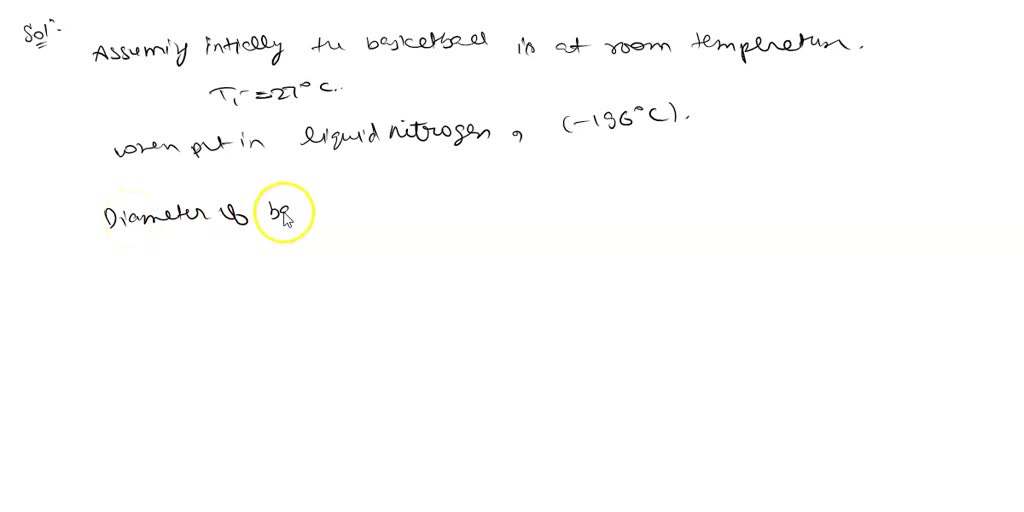 Solⁿ.
Assumiy intially the basketball is at room temperature.
Ti = 27° C.
when put in liquid nitrogen, (-196°C).
Diameter of ba